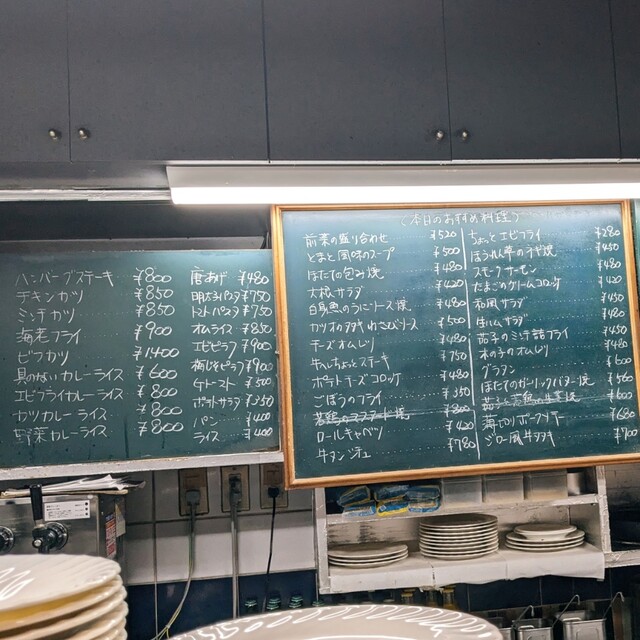 ハンバーグステーキ ¥800
チキンカツ ¥850
ミンチカツ ¥850
海老フライ ¥900
ビフカツ ¥1400
具のないカレーライス ¥600
エビフライカレーライス ¥800
カツカレーライス ¥800
野菜カレーライス ¥800
唐あげ ¥480
明太子パスタ ¥750
トマトパスタ ¥750
オムライス ¥850
エビピラフ ¥900
梅じそピラフ ¥900
Gトースト ¥500
ポテトサラダ ¥350
パン ¥400
ライス ¥400
本日のおすすめ料理
前菜の盛り合わせ ¥520
とまと風味のスープ ¥500
ほたての包み焼 ¥480
大根サラダ ¥420
白身魚のうにソース焼 ¥480
カツオのタタキわさびソース ¥500
チーズオムレツ ¥480
牛ヘレちょっとステーキ ¥750
ポテトチーズコロッケ ¥480
ごぼうのフライ ¥350
若鶏のマスタード焼 ¥800
ロールキャベツ ¥420
牛タンシチュー ¥780
ちょっとエビフライ ¥280
ほうれん草のチーズ焼 ¥450
スモークサーモン ¥480
たまごのクリームコロッケ ¥420
和風サラダ ¥450
生ハムサラダ ¥480
茄子のミンチ詰フライ ¥480
木の子のオムレツ ¥450
グラタン ¥600
ほたてのガーリックバター焼 ¥560
¥600
ポークソテー ¥680
ジロー風牛タタキ ¥700